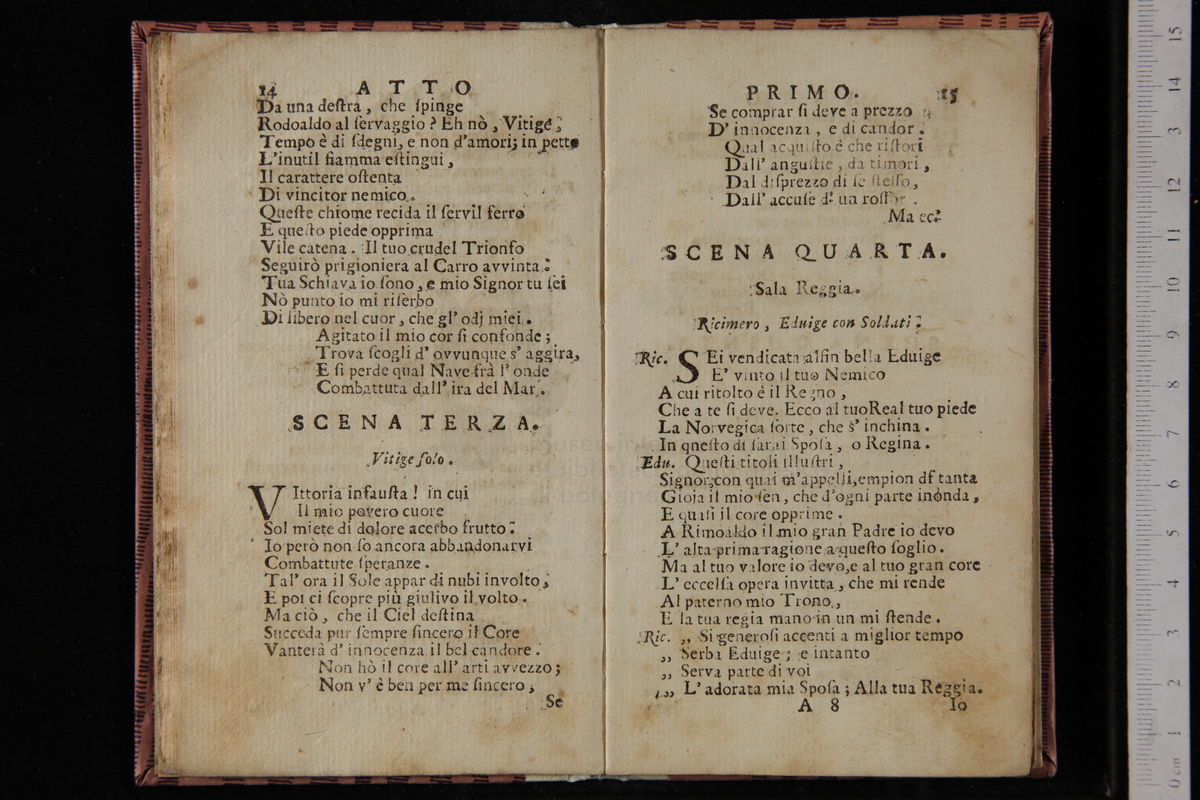 14 ATTO
Da una deſtra, che ſpinge
Rodoaldo al ſervaggio? Eh nò, Vitige;
Tempo è di ſdegni, e non d'amori; in petto
L'inutil fiamma eſtingui,
Il carattere oſtenta
Di vincitor nemico.
Queſte chiome recida il ſervil ferro
E queſto piede opprima
Vile catena. Il tuo crudel Trionfo
Seguirò prigioniera al Carro avvinta.
Tua Schiava io ſono, e mio Signor tu ſei
Nò punto io mi riſerbo
Di libero nel cuor, che gl' odj miei.
Agitato il mio cor ſi confonde;
Trova ſcogli d' ovvunque s' aggira,
E ſi perde qual Nave frà l' onde
Combattuta dall' ira del Mar.
SCENA TERZA.
Vitige ſolo.
VIttoria infauſta! in cui
Il mio povero cuore
Sol miete di dolore acerbo frutto.
Io però non ſo ancora abbandonarvi
Combattute ſperanze.
Tal' ora il Sole appar di nubi involto,
E poi ci ſcopre più giulivo il volto.
Ma ciò, che il Ciel deſtina
Succeda pur ſempre ſincero il Core
Vanterà d' innocenza il bel candore.
Non hò il core all' arti avvezzo;
Non v' è ben per me ſincero,
Se
PRIMO. 15
Se comprar ſi deve a prezzo
D' innocenza, e di candor.
Qual acquiſto è che riſtori
Dall' anguſtie, da timori,
Dal diſprezzo di ſe ſteſſo,
Dall' accuſe d' un roſſor.
Ma ec.
SCENA QUARTA.
Sala Reggia.
Ricimero, Eduige con Soldati.
Ric. SEi vendicata alfin bella Eduige
E' vinto il tuo Nemico
A cui ritolto è il Regno,
Che a te ſi deve. Ecco al tuoReal tuo piede
La Norvegica ſorte, che s' inchina.
In qneſto di ſarai Spoſa, o Regina.
Edu. Queſti titoli illuſtri,
Signor, con quai m'appelli, empion df tanta
Gioia il mio ſen, che d'ogni parte inonda,
E quaſi il core opprime.
A Rimoaldo il mio gran Padre io devo
L' alta prima ragione a queſto ſoglio.
Ma al tuo valore io devo, e al tuo gran core
L' eccelſa opera invitta, che mi rende
Al paterno mio Trono,
E la tua regia mano in un mi ſtende.
Ric. „ Si generoſi accenti a miglior tempo
„ Serba Eduige; e intanto
„ Serva parte di voi
„ L' adorata mia Spoſa; Alla tua Reggia.
A 8 Io
0 cm 1 2 3 4 5 6 7 8 9 10 11 12 13 14 15